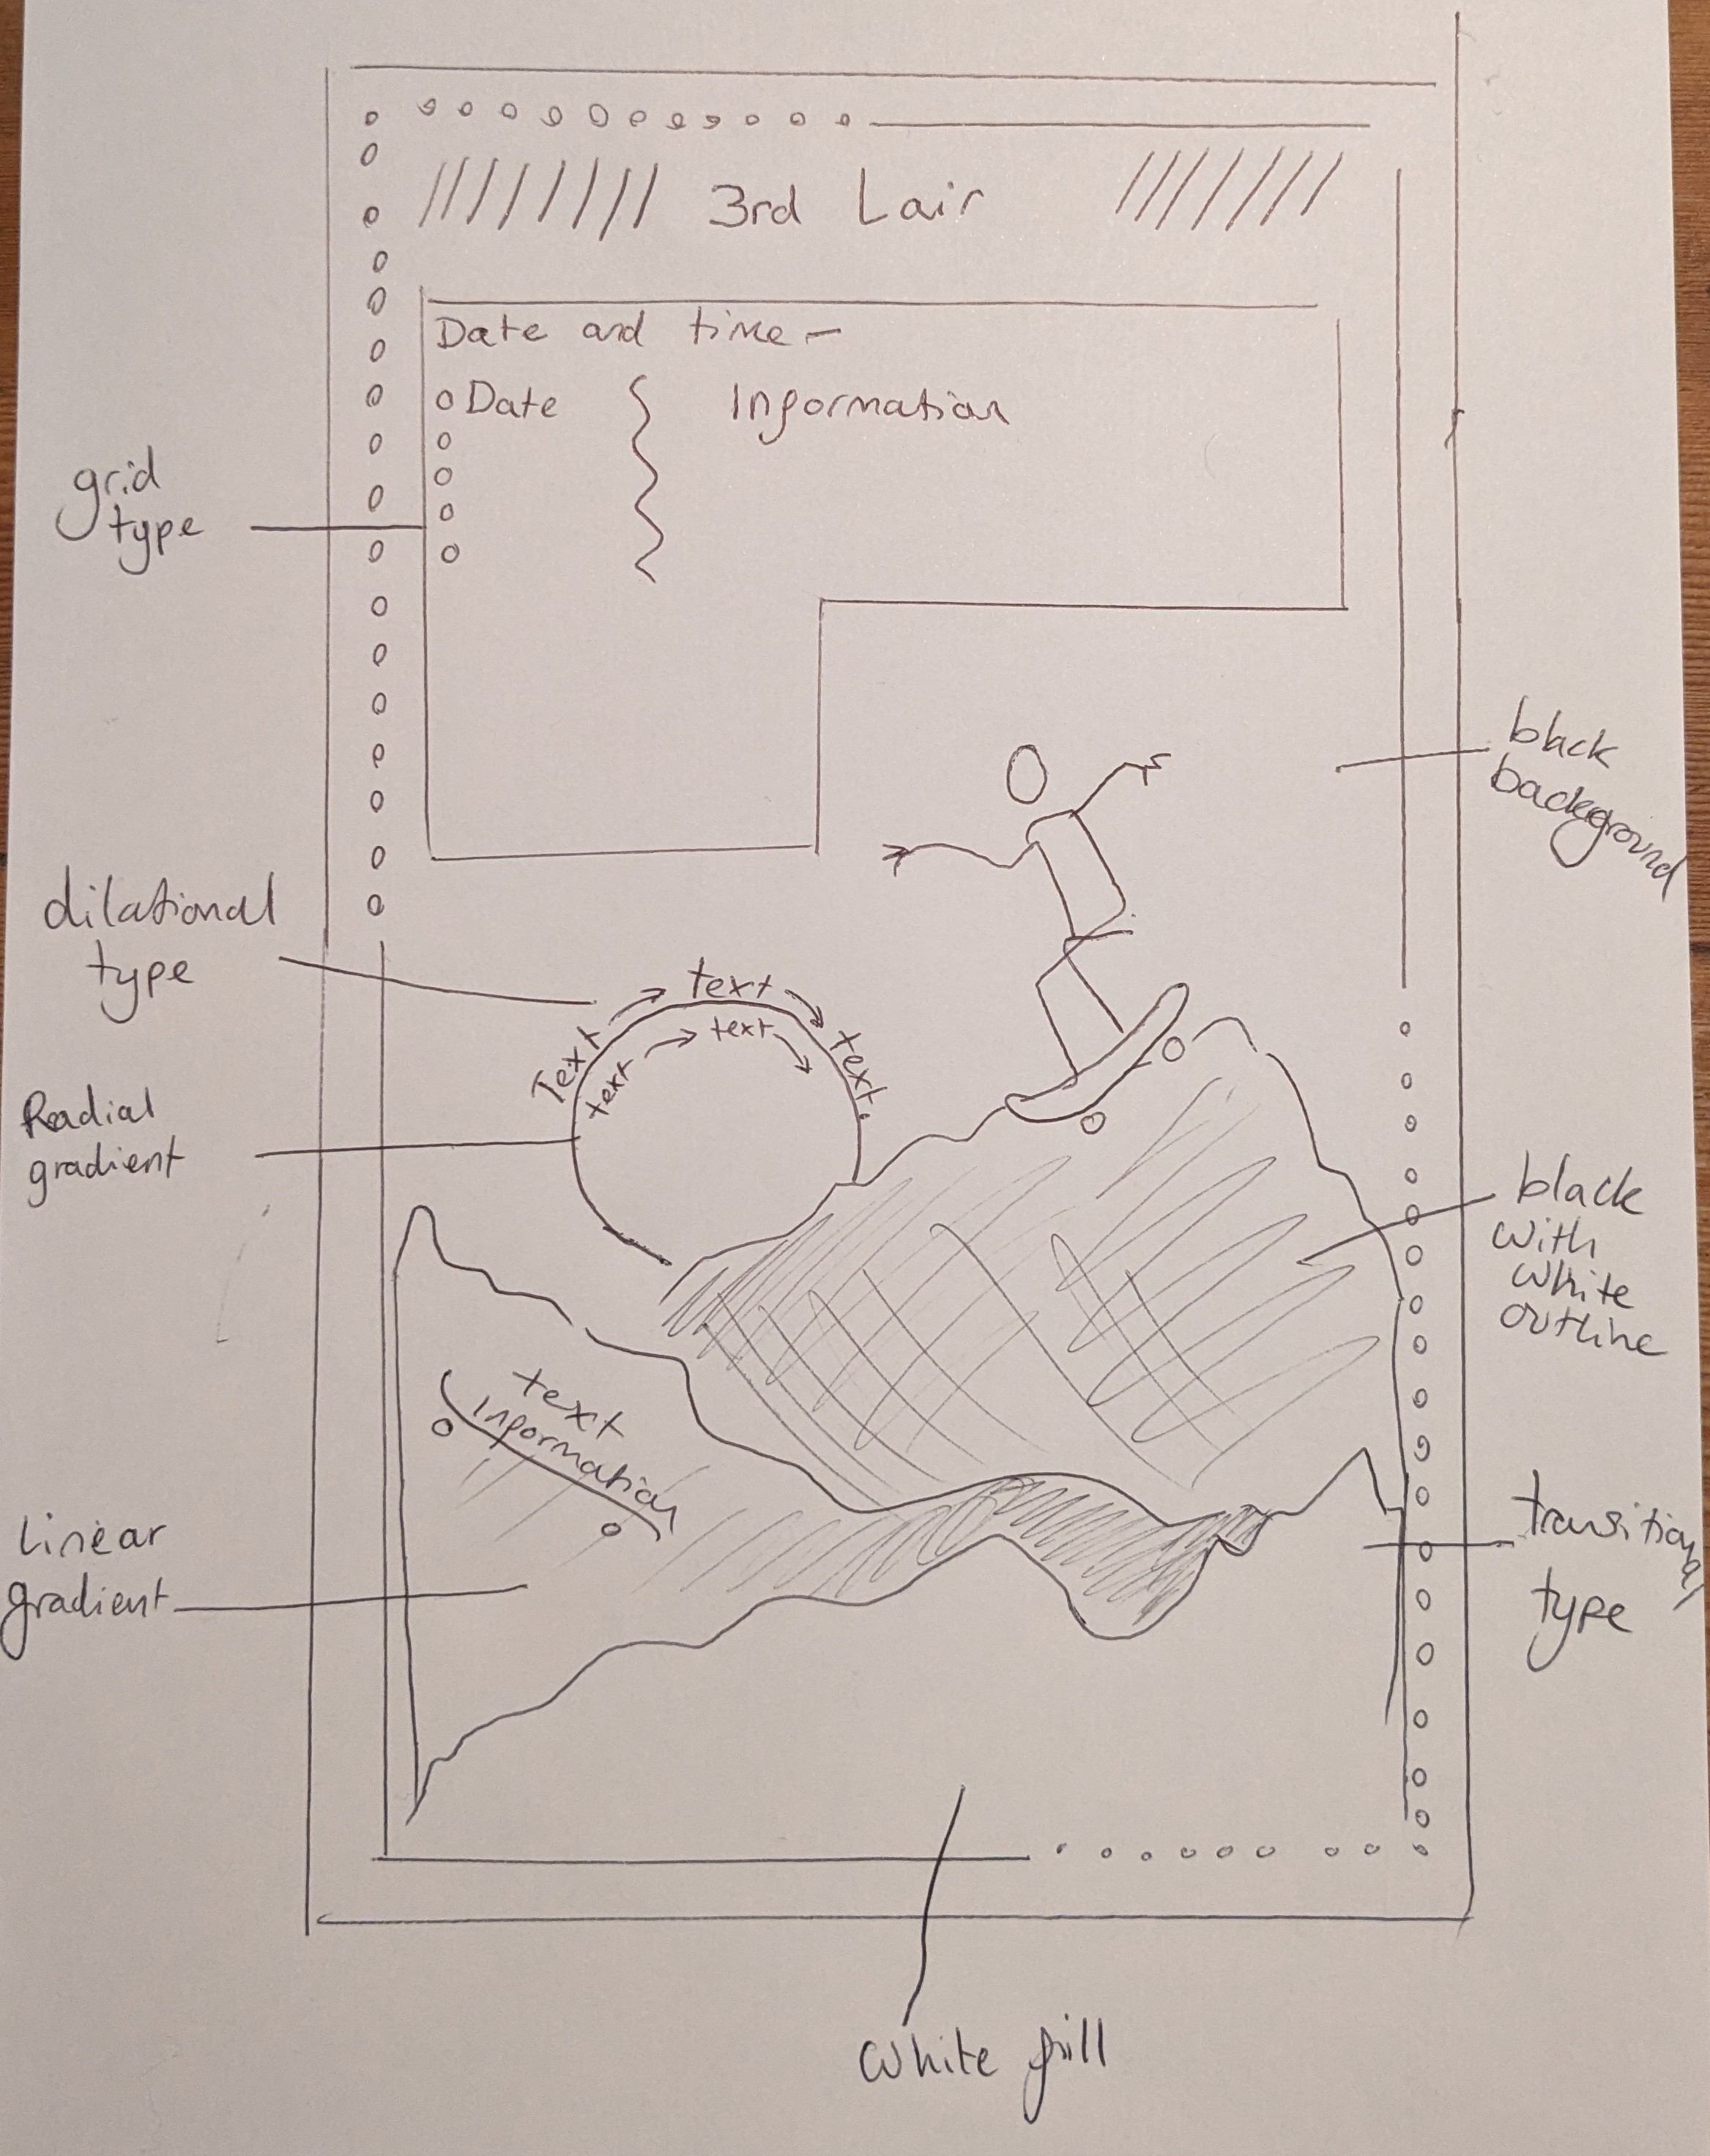 3rd Lair
Date and time -
Date
Information
grid
type
black
background
dilational
type
text
Text
text
text
text
text.
Radial
gradient
black
with
white
outline
text
Information
linear
gradient
transitional
type
white fill